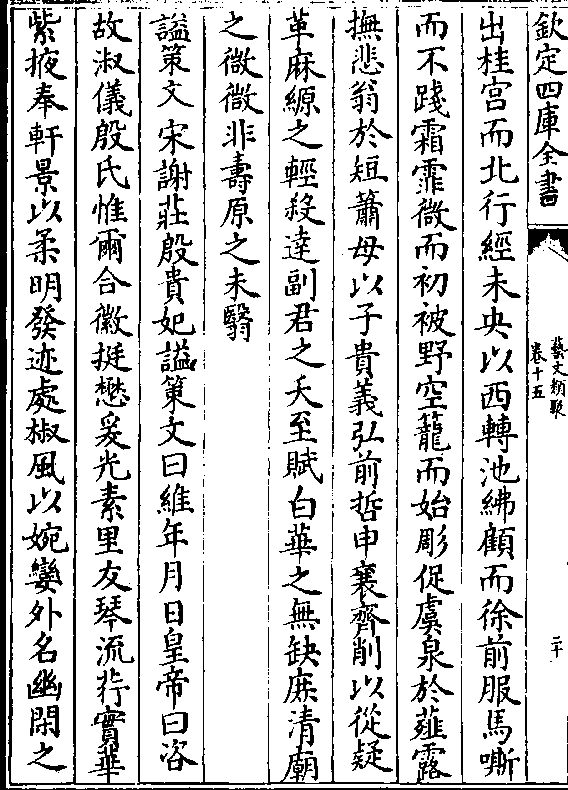 欽定四庫全書
藝文類聚
卷十五
二十
出桂宫而北行經未央以西轉池紼顧而徐前服馬嘶
而不踐霜霏微而初被野空籠而始彫促虞泉於薤露
撫悲翁於短蕭母以子貴義弘前哲申襄齊削以從疑
苴麻縓之輕殺達副君之夭至賦白華之無缺庶清廟
之微微非壽原之未翳
謚策文宋謝莊殷貴妃謚策文曰維年月日皇帝曰咨
故淑儀殷氏惟爾合徽挺懋爰光素里友琴流荇實華
紫掖奉軒景以柔明發迹處椒風以婉孌外名幽閑之